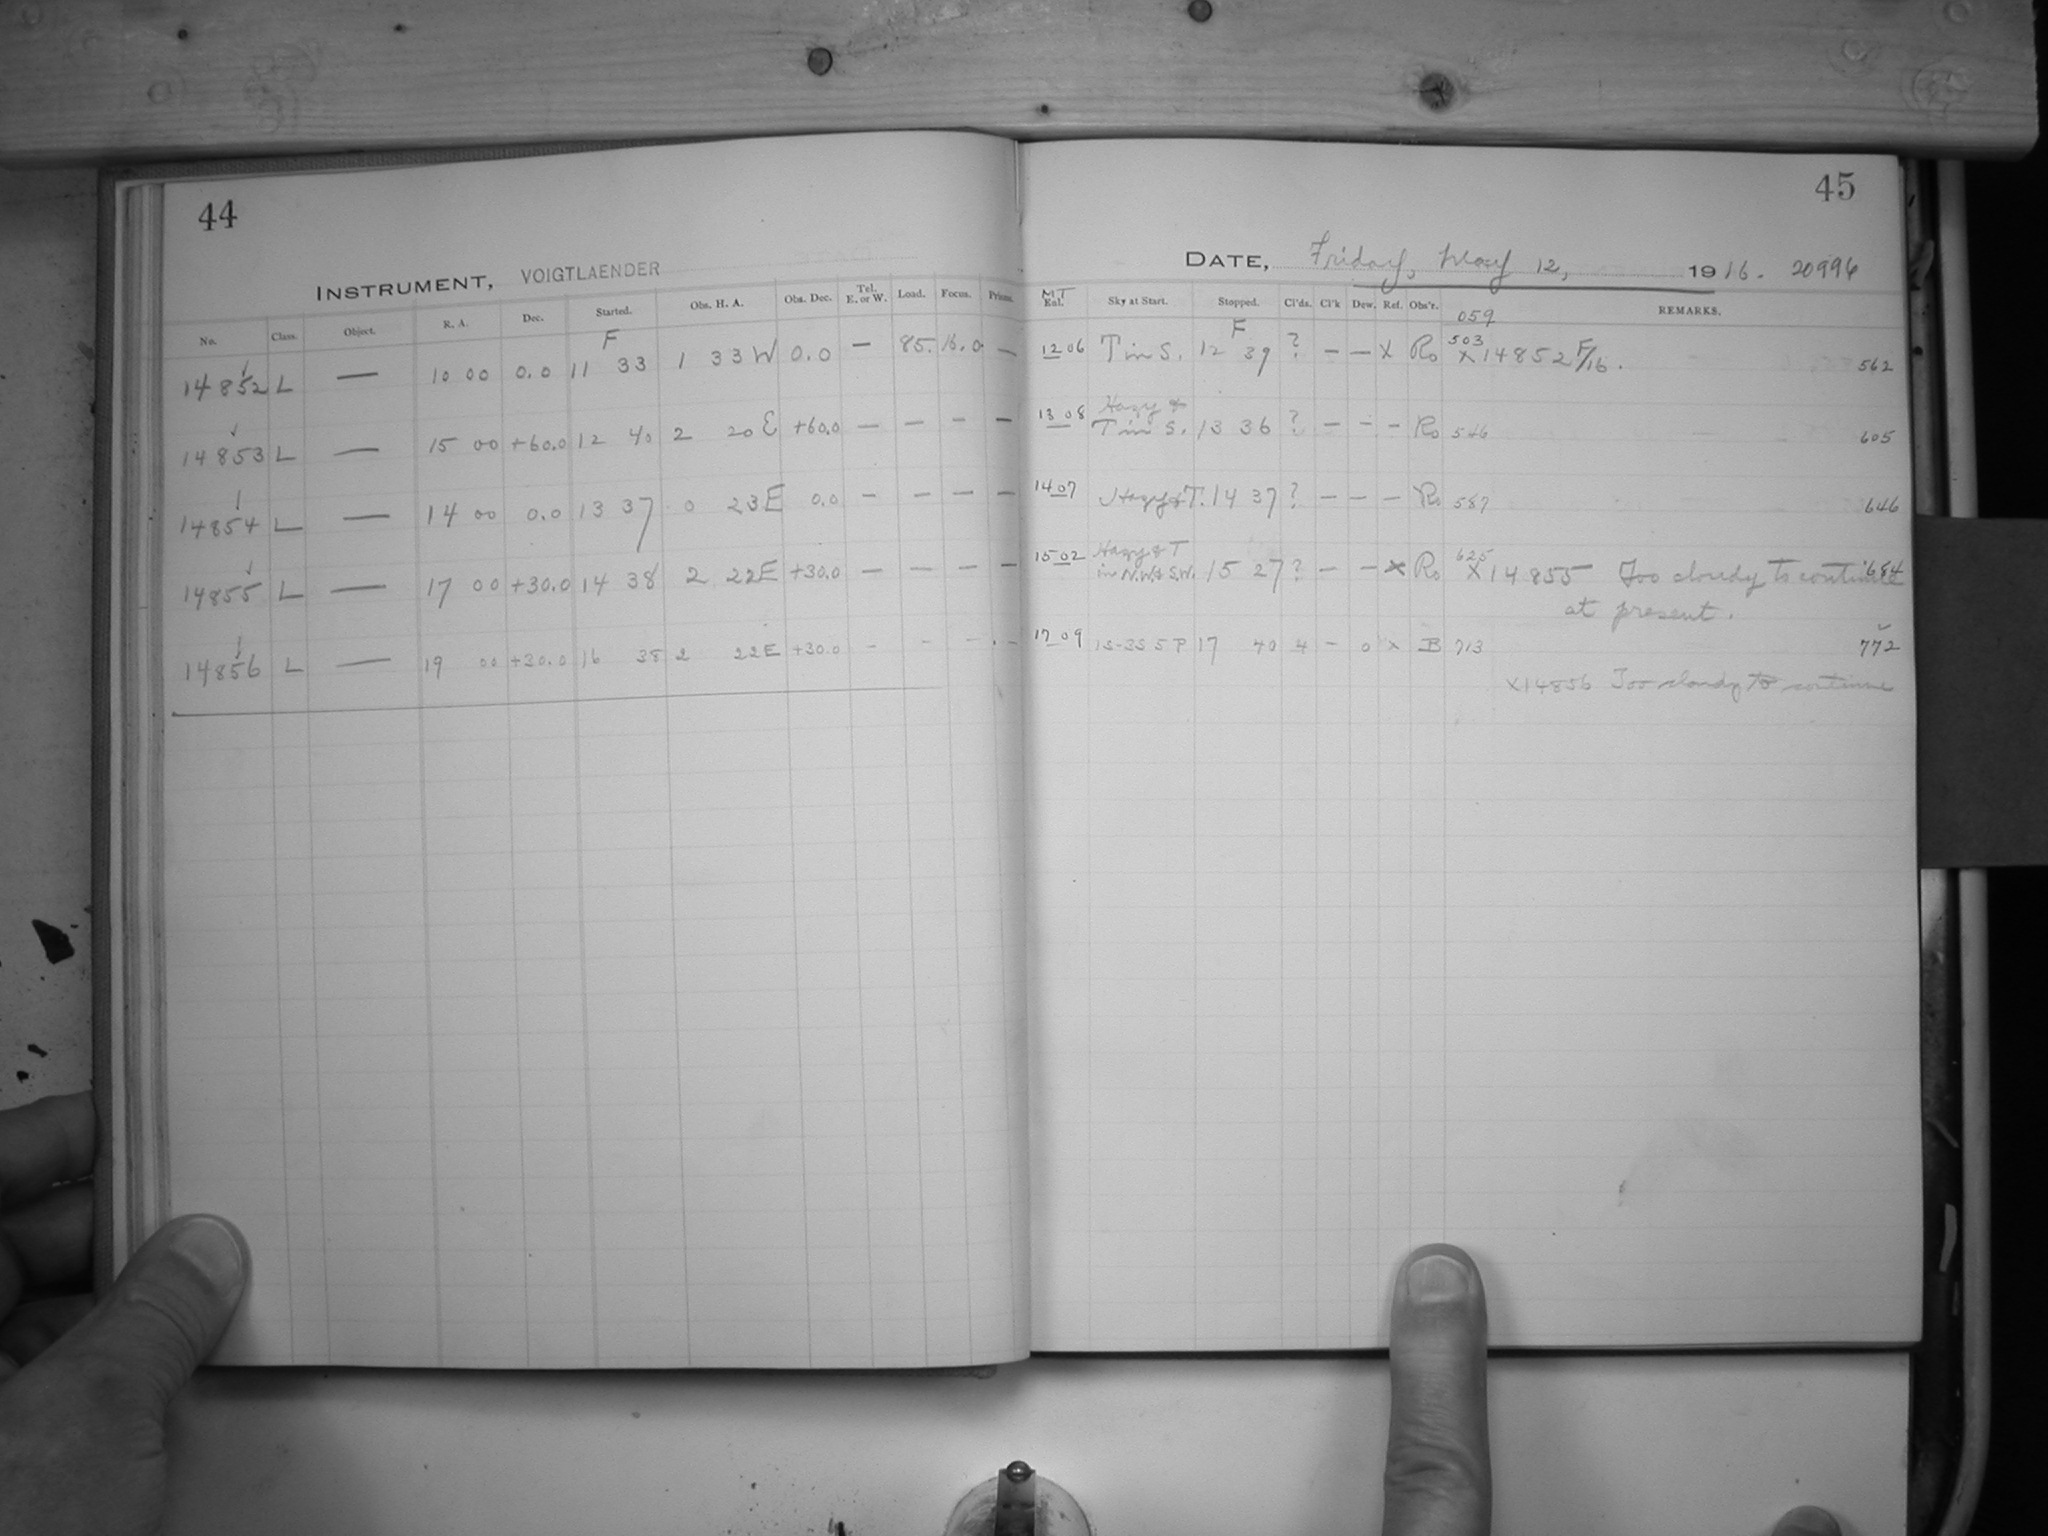 44
INSTRUMENT, VOIGTLAENDER
No. Class. Object. R. A. Dec. Started. Obs. H. A. Obs. Dec. Tel. E. or W. Load. Focus. Prisms.
F
14852 L — 10 00 0.0 11 33 1 33 W 0.0 — 85. 16.0 —
14853 L — 15 00 +60.0 12 40 2 20 E +60.0 — — — —
14854 L — 14 00 0.0 13 37 0 23 E 0.0 — — — —
14855 L — 17 00 +30.0 14 38 2 22 E +30.0 — — — —
14856 L — 19 00 +30.0 16 38 2 22 E +30.0 - - - -
45
DATE, Friday, May 12, 1916. 20996
MT
Exl. Sky at Start. Stopped. Cl'ds. Cl'k Dew. Ref. Obs'r. REMARKS.
059
F
12 06 T in S. 12 39 ? — — X Ro 503 X 14852 F/16. 562
13 08 Hazy & T in S. 13 36 ? — — — Ro 546 605
14 07 Hazy & T. 14 37 ? — — — Ro 587 646
15 02 Hazy & T in N.W. & S.W. 15 27 ? — — X Ro 625 X 14855 Too cloudy to continue 684
at present.
17 09 1S-3S 5 P 17 40 4 — 0 X B 713 772
X14856 Too cloudy to continue